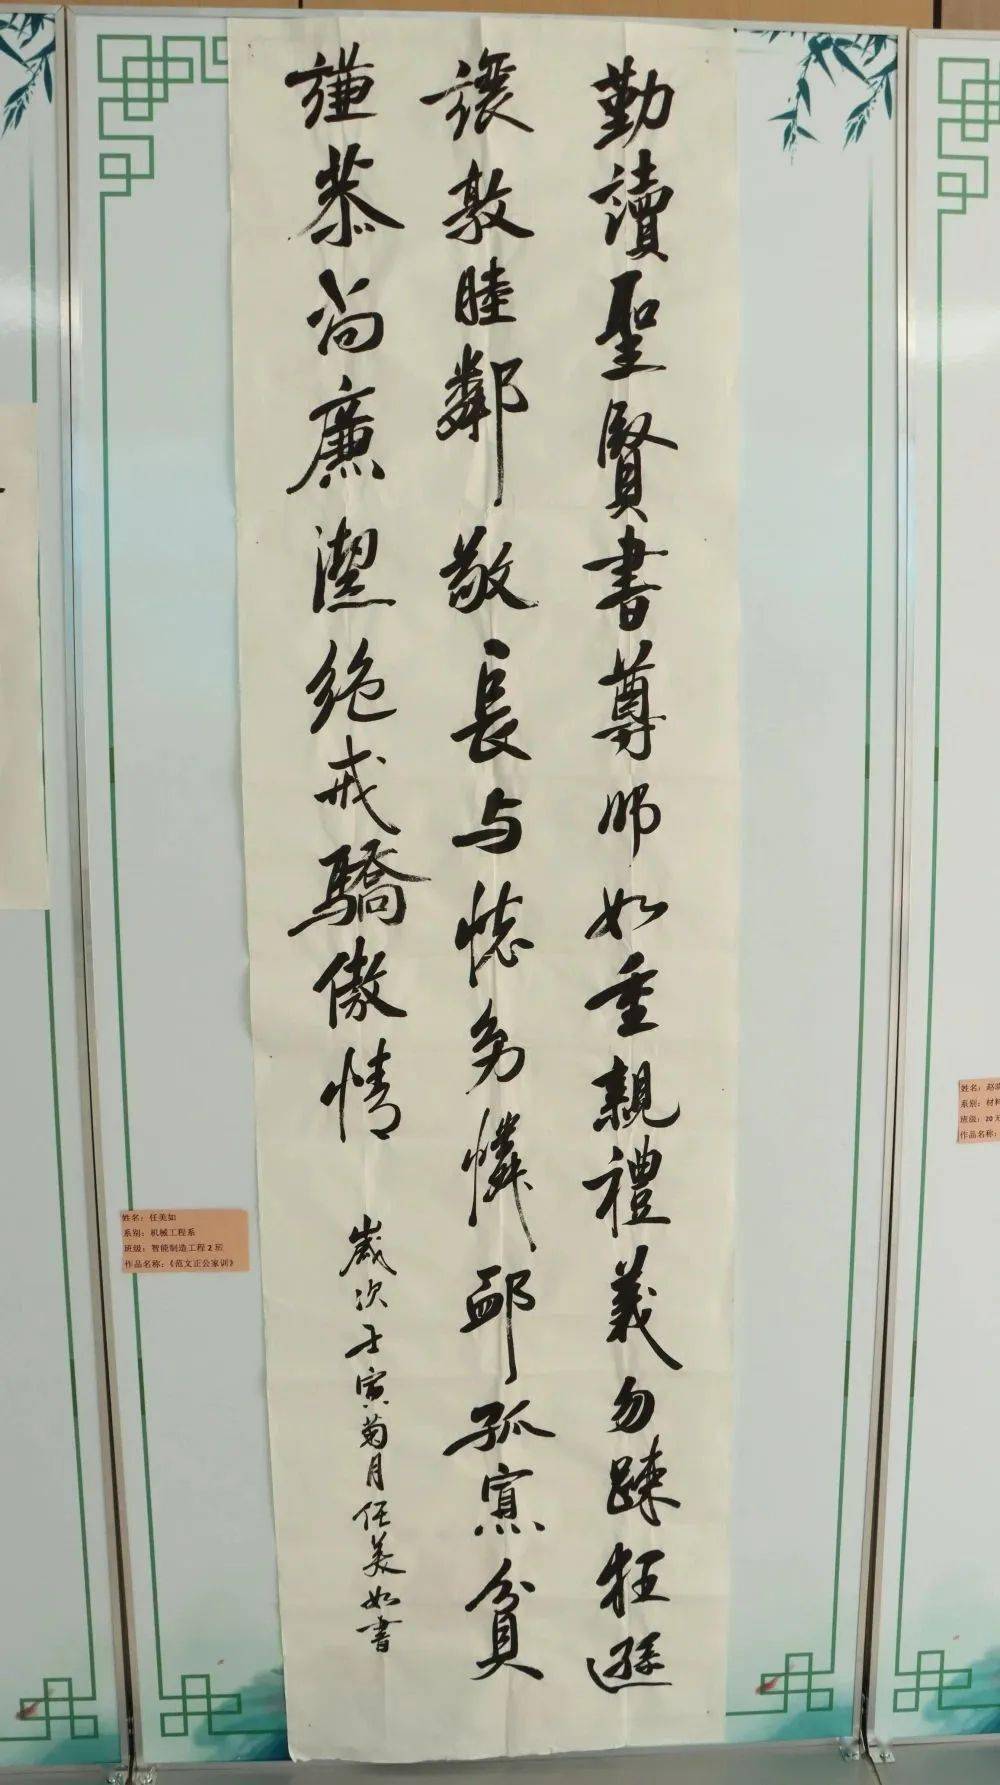 勤讀聖賢書尊師如重親禮義勿踈狂遜
讓敦睦鄰敬長与懷幼憐邺孤寡貧
謙恭尚廉潔絶戒驕傲情
歲次壬寅菊月任美如書
姓名：任美如
系别：机械工程系
班级：智能制造工程2班
作品名称：《范文正公家训》
姓名：赵
系别：材料
班级：20
作品名称：